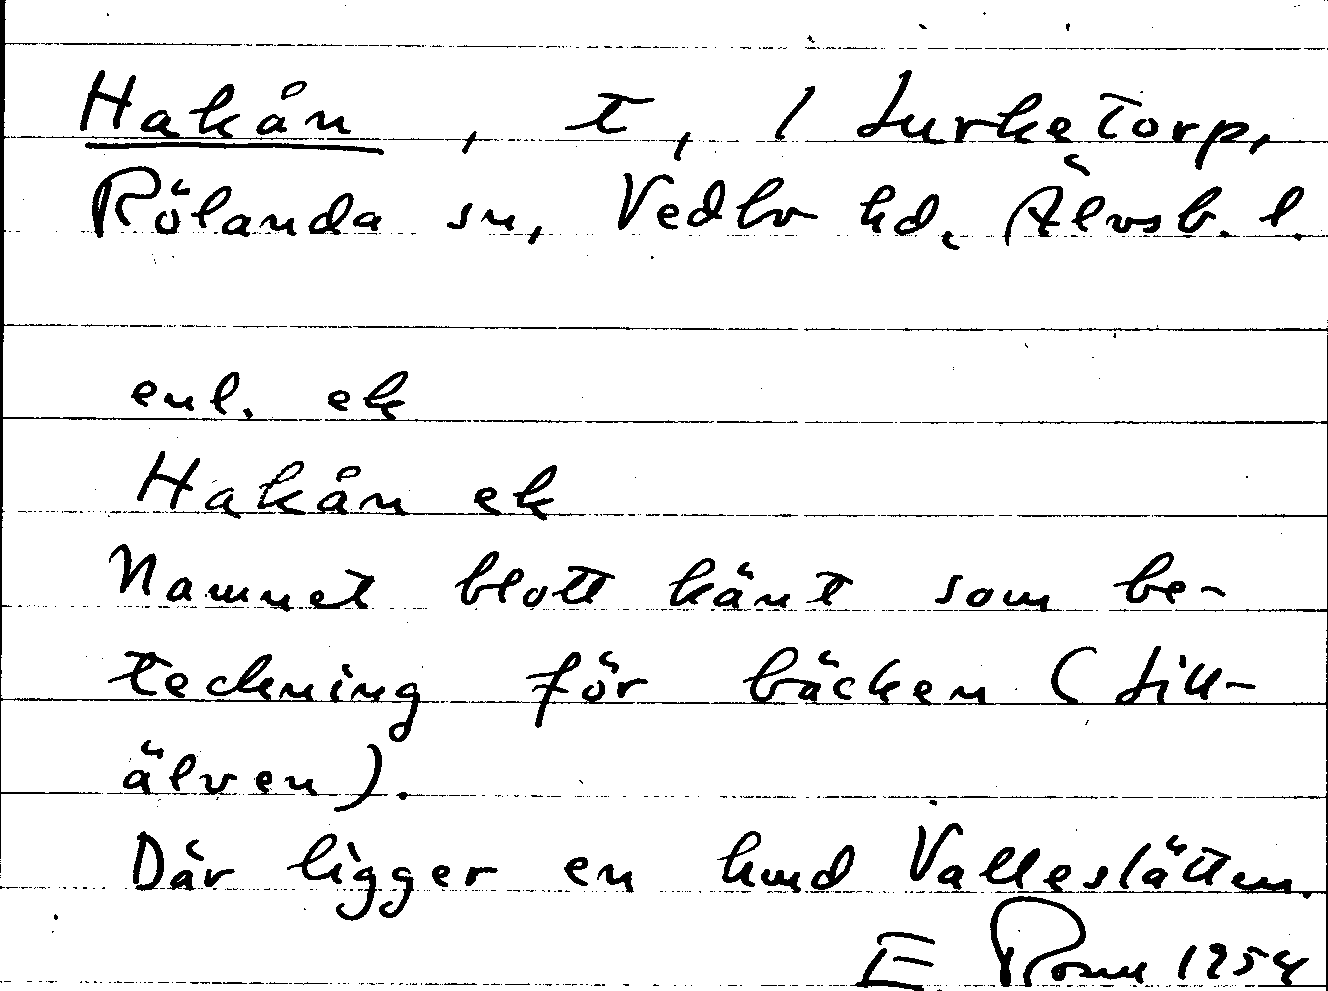 Hakån, t, 1 Lurketorp,
Rölanda sn, Vedbo hd, Älvsb. l.
enl. ek
Hakån ek
Namnet blott känt som be-
teckning för bäcken (Lill-
älven).
Där ligger en hmd Valleslätten.
E 1954